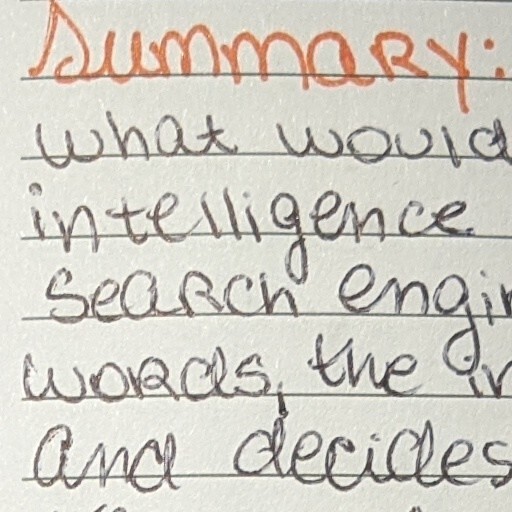 Summary:
what would
intelligence
search
words, the
and decides